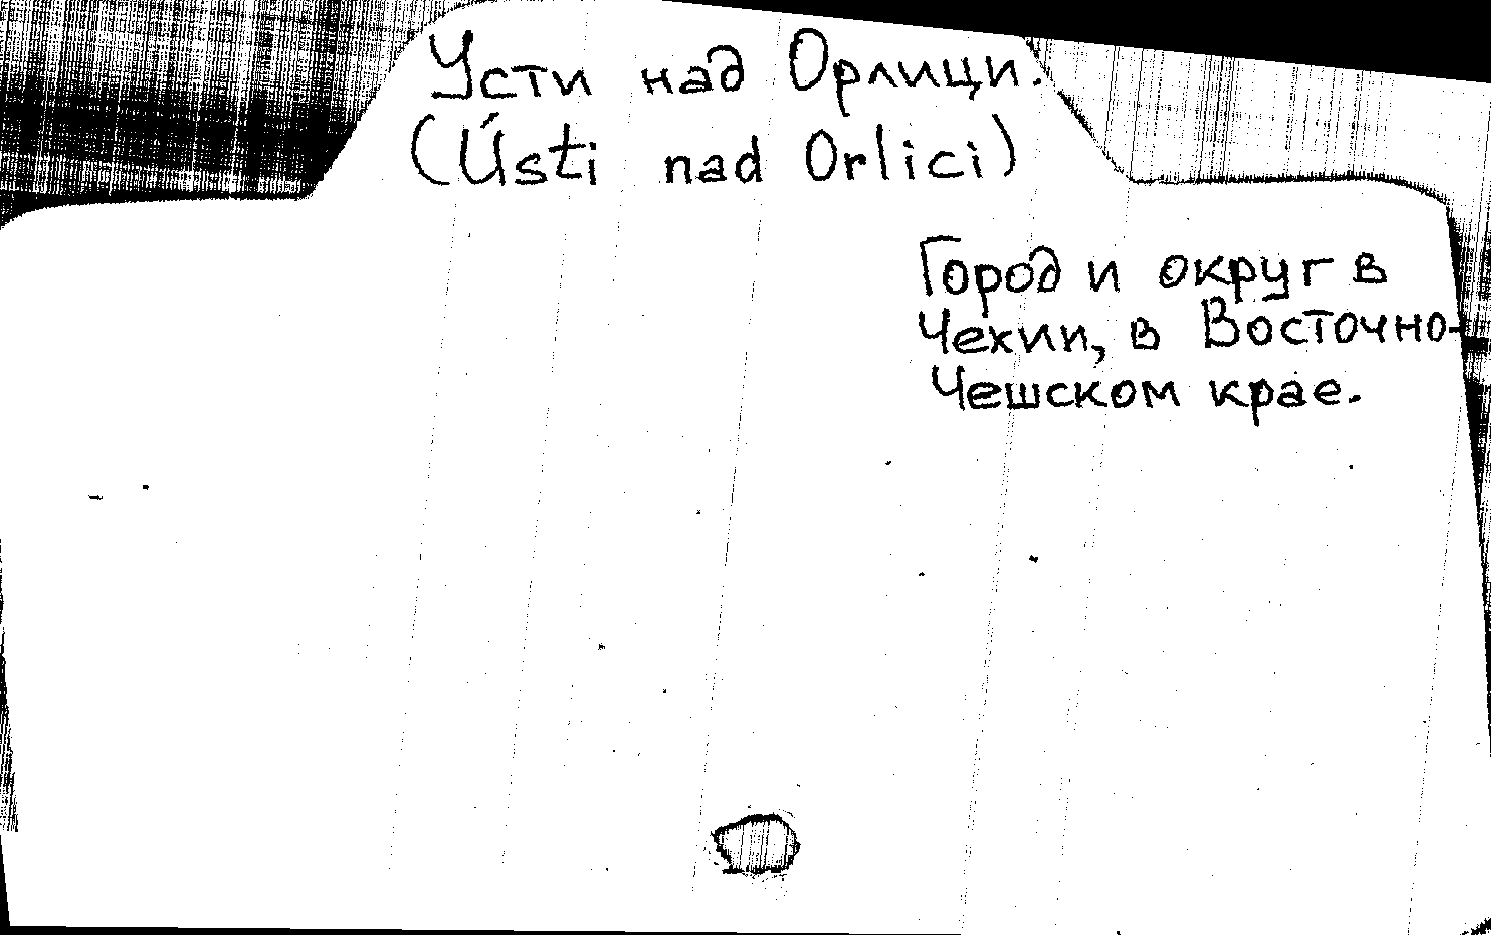 Усти над Орлици.
(Ústi nad Orlici)
Город и округ в
Чехии, в Восточно-
Чешском крае.